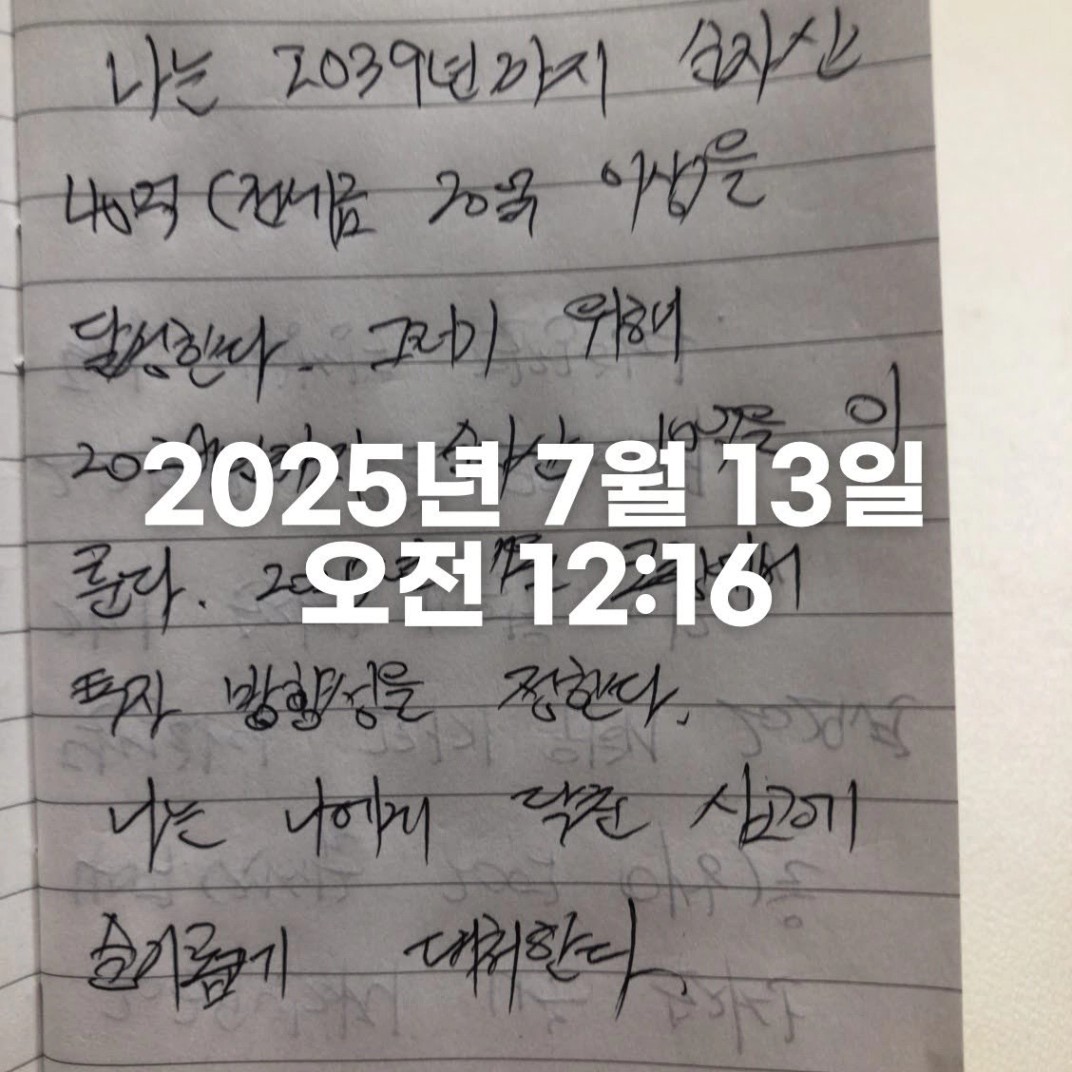 나는 2039년까지 순자산
40억 (전세금 20억 이상을
달성한다. 그러기 위해
순자산 이
2025년 7월 13일
오전 12:16
룬다.
투자 방향성을 정한다.
나는 나에게 닥친
슬기롭게 대처한다.